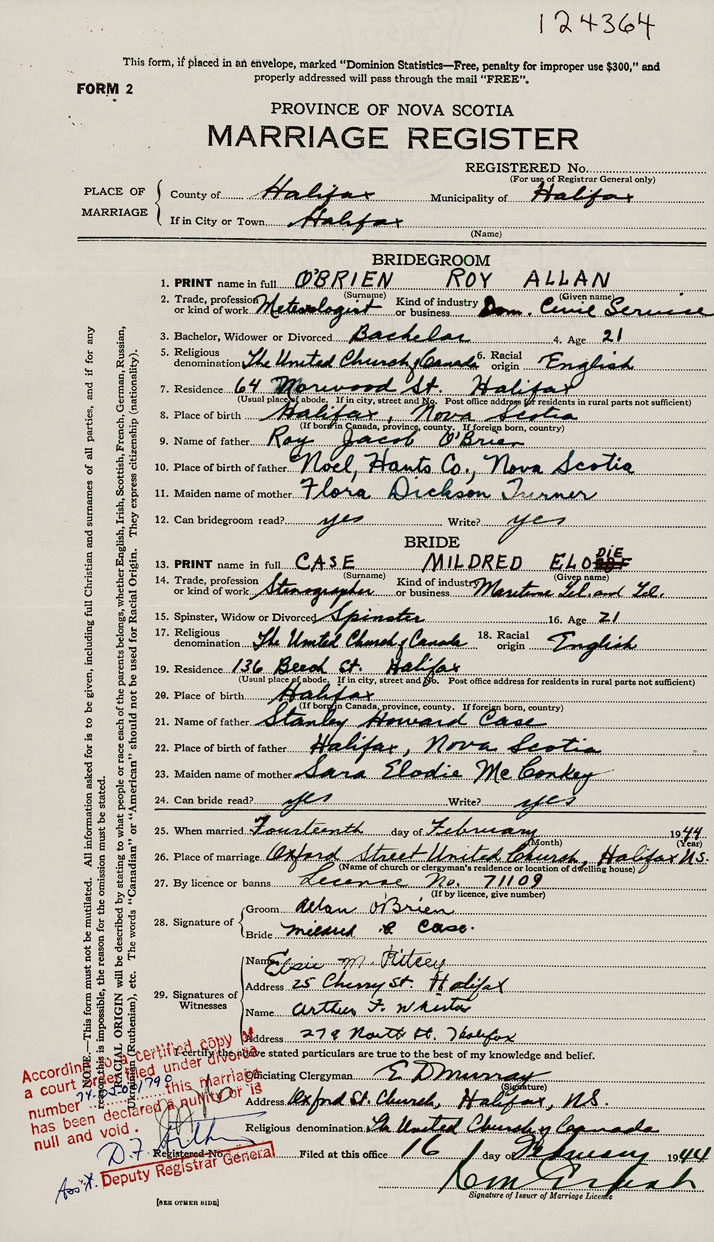 124364
This form, if placed in an envelope, marked "Dominion Statistics—Free, penalty for improper use $300," and
properly addressed will pass through the mail "FREE".
FORM 2
PROVINCE OF NOVA SCOTIA
MARRIAGE REGISTER
REGISTERED No.
(For use of Registrar General only)
PLACE OF MARRIAGE
County of Halifax Municipality of Halifax
If in City or Town Halifax
(Name)
BRIDEGROOM
1. PRINT name in full O'BRIEN ROY ALLAN
(Surname) (Given name)
2. Trade, profession or kind of work Meteorologist Kind of industry or business Dom. Civil Service
3. Bachelor, Widower or Divorced Bachelor 4. Age 21
5. Religious denomination The United Church of Canada 6. Racial origin English
7. Residence 64 Norwood St. Halifax
(Usual place of abode. If in city, street and No. Post office address for residents in rural parts not sufficient)
8. Place of birth Halifax, Nova Scotia
(If born in Canada, province, county. If foreign born, country)
9. Name of father Roy Jacob O'Brien
10. Place of birth of father Noel, Hants Co., Nova Scotia
11. Maiden name of mother Flora Dickson Turner
12. Can bridegroom read? yes Write? yes
BRIDE
13. PRINT name in full CASE MILDRED ELODIE
(Surname) (Given name)
14. Trade, profession or kind of work Stenographer Kind of industry or business Maritime Tel. and Tel.
15. Spinster, Widow or Divorced Spinster 16. Age 21
17. Religious denomination The United Church of Canada 18. Racial origin English
19. Residence 136 Beech St. Halifax
(Usual place of abode. If in city, street and No. Post office address for residents in rural parts not sufficient)
20. Place of birth Halifax
(If born in Canada, province, county. If foreign born, country)
21. Name of father Stanley Howard Case
22. Place of birth of father Halifax, Nova Scotia
23. Maiden name of mother Sara Elodie McConkey
24. Can bride read? yes Write? yes
25. When married Fourteenth day of February 1944
(Month) (Year)
26. Place of marriage Oxford Street United Church, Halifax N.S.
(Name of church or clergyman's residence or location of dwelling house)
27. By licence or banns License No. 71109
(If by licence, give number)
28. Signature of
Groom Allan O'Brien
Bride Mildred E. Case.
29. Signatures of Witnesses
Name Elsie M. Pitcey
Address 25 Cherry St. Halifax
Name Arthur F. Whiston
Address 279 North St. Halifax
I certify the above stated particulars are true to the best of my knowledge and belief.
Officiating Clergyman E. D. Murray
(Signature)
Address Oxford St. Church, Halifax, N.S.
Religious denomination The United Church of Canada
Registered No. Filed at this office 16 day of February 1944
Signature of Issuer of Marriage Licence
[SEE OTHER SIDE]
NOTE.—This form must not be mutilated. All information asked for is to be given, including full Christian and surnames of all parties, and if for any
reason this is impossible, the reason for the omission must be stated.
RACIAL ORIGIN will be described by stating to what people or race each of the parents belongs, whether English, Irish, Scottish, French, German, Russian,
Ukrainian (Ruthenian), etc. The words "Canadian" or "American" should not be used for Racial Origin. They express citizenship (nationality).
According to a certified copy of
a court order filed under divorce
number this marriage
has been declared a nullity or is
null and void.
Ass't. Deputy Registrar General